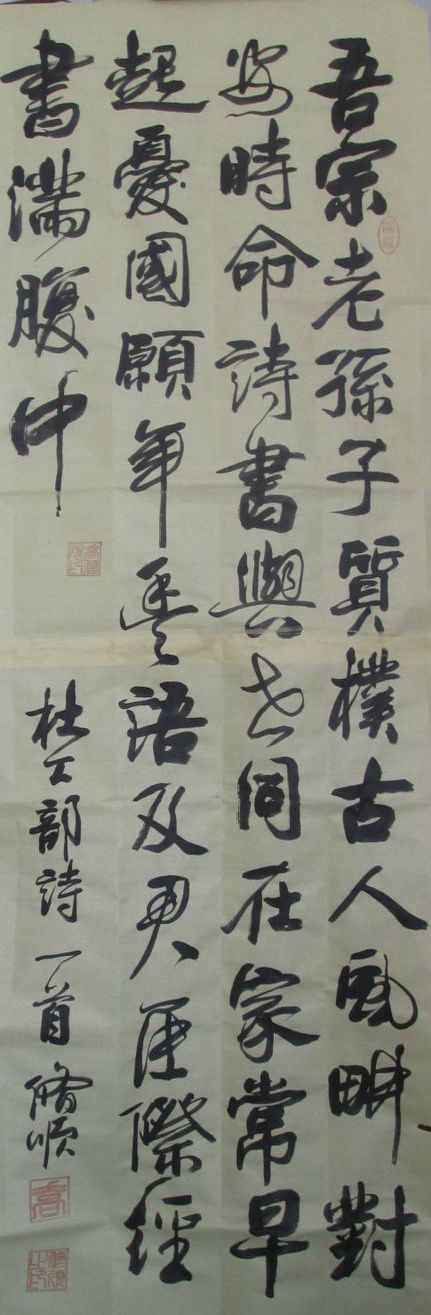 吾宗老孫子質樸古人風畊對
安時命詩書與世同在家常早
起憂國願年豐語及君臣際經
書滿腹中
杜工部詩一首 脩順